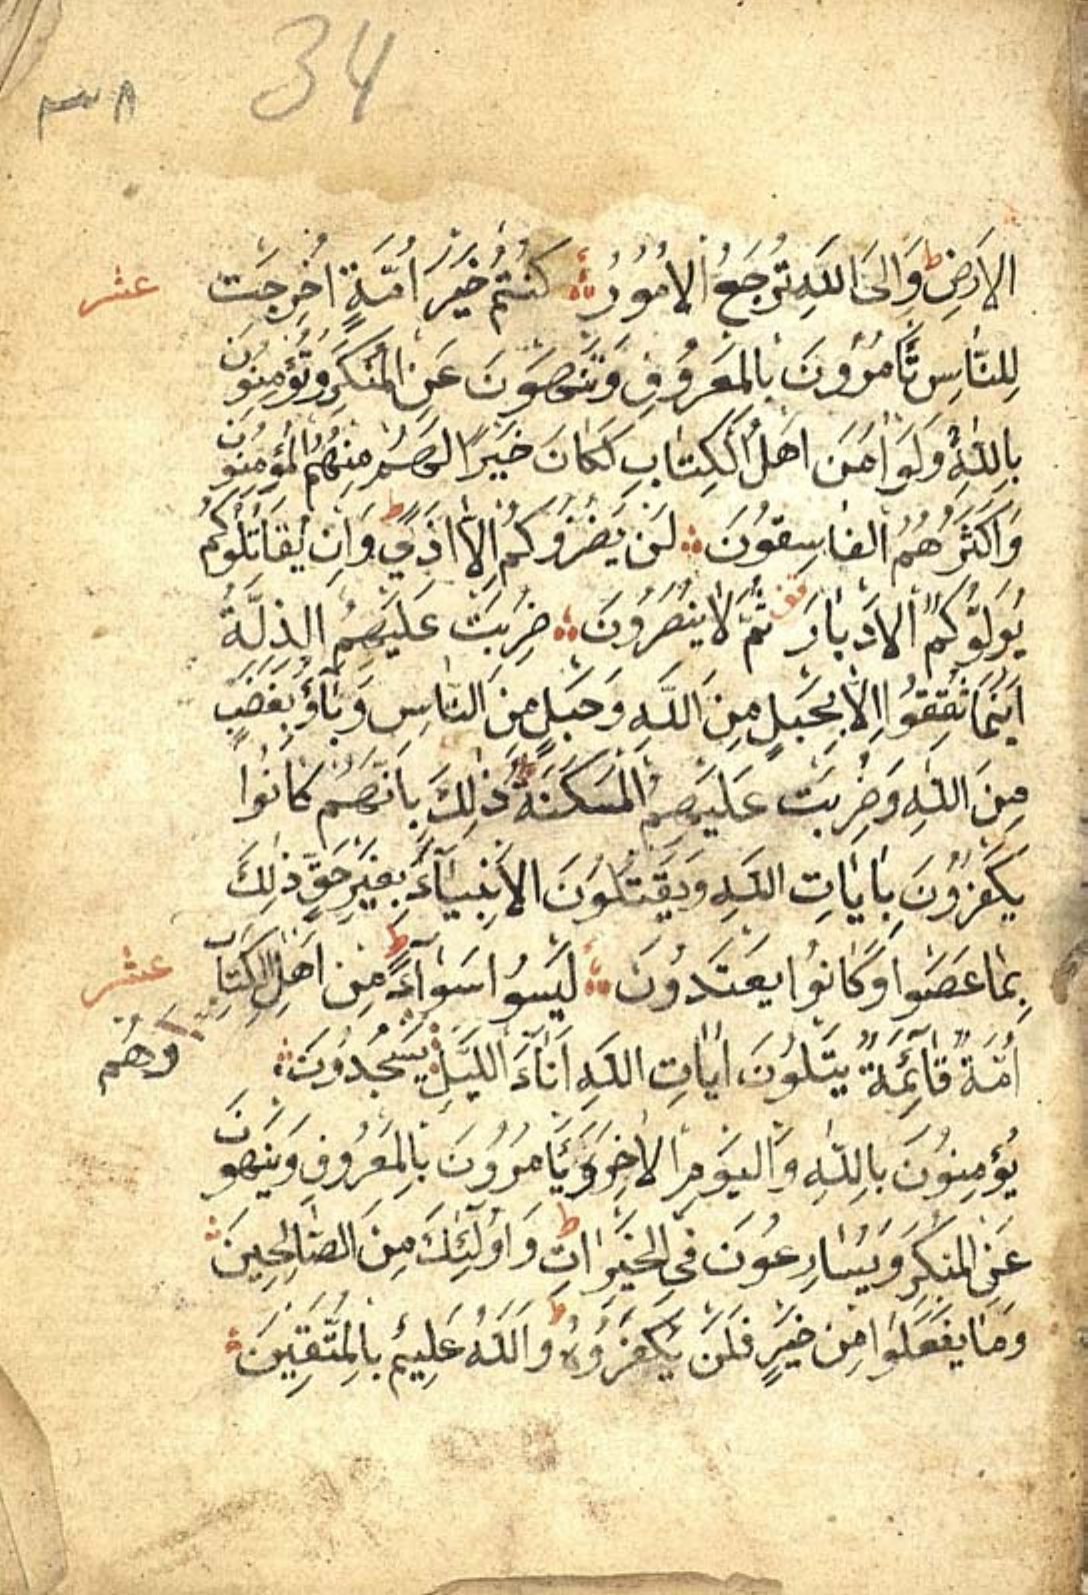 34
٣٨
الاَرْضِ ط وَاِلَى اللّٰهِ تُرْجَعُ الْاُمُورُ كُنْتُمْ خَيْرَ اُمَّةٍ اُخْرِجَتْ
عشر
لِلنَّاسِ تَأْمُرُونَ بِالْمَعْرُوفِ وَتَنْهَوْنَ عَنِ الْمُنْكَرِ وَتُؤْمِنُونَ
بِاللّٰهِ وَلَوْ اٰمَنَ اَهْلُ الْكِتَابِ لَكَانَ خَيْرًا لَهُمْ مِنْهُمُ الْمُؤْمِنُونَ
وَاَكْثَرُهُمُ الْفَاسِقُونَ لَنْ يَضُرُّوكُمْ اِلَّا اَذًى ط وَاِنْ يُقَاتِلُوكُمْ
يُوَلُّوكُمُ الْاَدْبَارَ قف ثُمَّ لَا يُنْصَرُونَ ضُرِبَتْ عَلَيْهِمُ الذِّلَّةُ
اَيْنَمَا ثُقِفُوا اِلَّا بِحَبْلٍ مِنَ اللّٰهِ وَحَبْلٍ مِنَ النَّاسِ وَبَاؤُ بِغَضَبٍ
مِنَ اللّٰهِ وَضُرِبَتْ عَلَيْهِمُ الْمَسْكَنَةُ ط ذٰلِكَ بِاَنَّهُمْ كَانُوا
يَكْفُرُونَ بِاٰيَاتِ اللّٰهِ وَيَقْتُلُونَ الْاَنْبِيَآءَ بِغَيْرِ حَقٍّ ذٰلِكَ
بِمَا عَصَوْا وَكَانُوا يَعْتَدُونَ لَيْسُوا سَوَآءً ط مِنْ اَهْلِ الْكِتَابِ
عشر
اُمَّةٌ قَآئِمَةٌ يَتْلُونَ اٰيَاتِ اللّٰهِ اٰنَآءَ اللَّيْلِ يَسْجُدُونَ
وَهُمْ
يُؤْمِنُونَ بِاللّٰهِ وَالْيَوْمِ الْاٰخِرِ وَيَأْمُرُونَ بِالْمَعْرُوفِ وَيَنْهَوْنَ
عَنِ الْمُنْكَرِ وَيُسَارِعُونَ فِى الْخَيْرَاتِ ط وَاُولٰٓئِكَ مِنَ الصَّالِحِينَ
وَمَا يَفْعَلُوا مِنْ خَيْرٍ فَلَنْ يُكْفَرُوهُ ط وَاللّٰهُ عَلِيمٌ بِالْمُتَّقِينَ